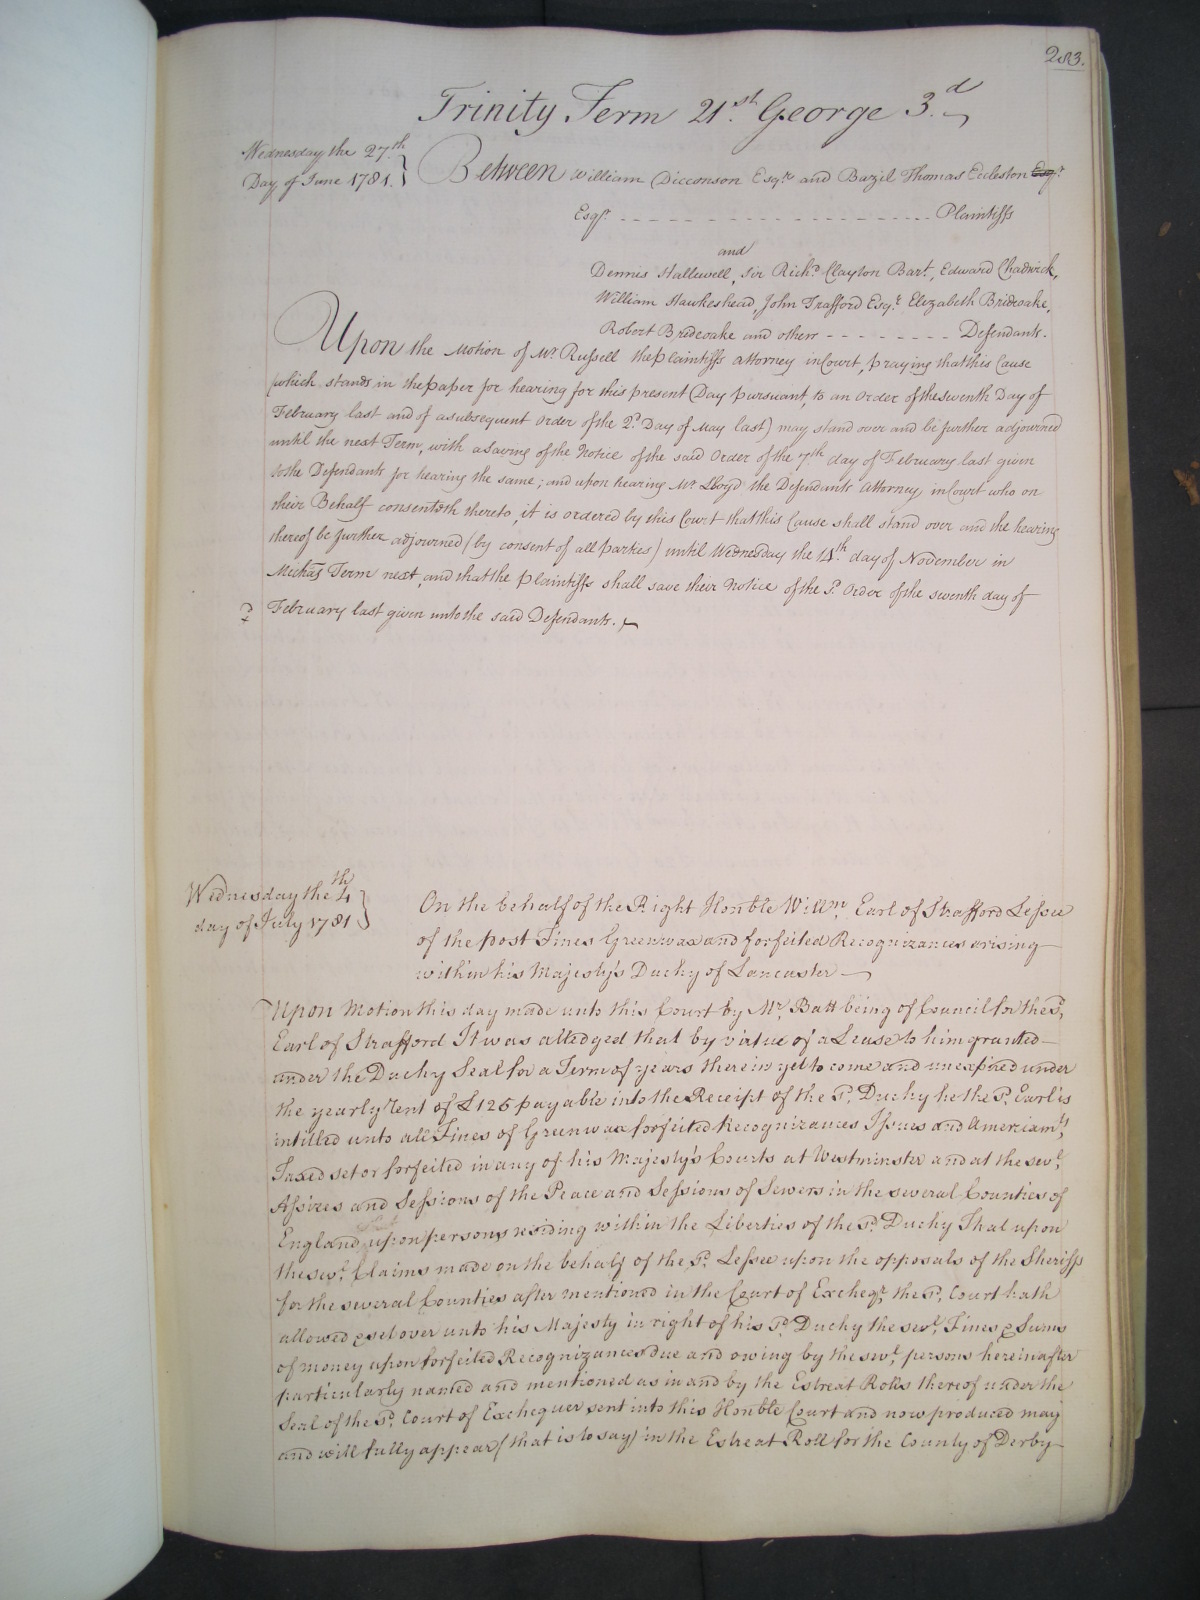 283.
Trinity Term 21st. George 3.d
Wednesday the 27th.
Day of June 1781.
Between William Dicconson Esqre. and Bazil Thomas Eccleston Esqr.
Esqr. - - - - - - - - - - - - - - - - - - - Plaintiffs
and
Dennis Hallewell, Sir Richd. Clayton Bart., Edward Chadwick,
William Hawkeshead, John Trafford Esqr. Elizabeth Brideoake,
Robert Brideoake and others - - - - - - - - Defendants.
Upon the Motion of Mr. Russell the Plaintiffs Attorney in Court, praying that this Cause
(which stands in the paper for hearing for this present Day pursuant, to an Order of the seventh Day of
February last and of a subsequent Order of the 2d. Day of May last) may stand over and be further adjourned
until the next Term, with a Saving of the Notice of the said Order of the 7th. day of February last given
to the Defendants for hearing the same; and upon hearing Mr. Lloyd the Defendants Attorney in Court who on
their Behalf consenteth thereto, it is ordered by this Court that this Cause shall stand over and the hearing
thereof be further adjourned (by consent of all parties) until Wednesday the 14th. day of November in
Michãs Term next, and that the plaintiffs shall save their Notice of the Sd. Order of the seventh day of
February last given unto the said Defendants.
Wednesday the 4th
day of July 1781
On the behalf of the Right Honble Willm. Earl of Strafford Lessee
of the post Fines Greenwax and forfeited Recognizances arising
within his Majesty's Duchy of Lancaster
Upon Motion this day made unto this Court by Mr. Batt being of Council for the Sd.
Earl of Strafford It was alledged that by virtue of a Lease to him granted
under the Duchy Seal for a Term of years therein yet to come and unexpired under
the yearly rent of £126 payable into the Receipt of the Sd. Duchy he the Sd. Earl is
intitled unto all Fines of Greenwax forfeited Recognizances Issues and Amerciamts.
Taxed set or forfeited in any of his Majesty's Courts at Westminster and at the sevl.
Assizes and Sessions of the Peace and Sessions of Sewers in the several Counties of
England upon persons residing within the Liberties of the Sd. Duchy That upon
the sevl. Claims made on the behalf of the Sd. Lessee upon the opposals of the Sheriffs
for the several Counties after mentioned in the Court of Excheqr. the Sd. Court hath
allowed & set over unto his Majesty in right of his Sd. Duchy the sevl. Fines & Sums
of money upon forfeited Recognizances due and owing by the sevl. persons hereinafter
particularly named and mentioned as in and by the Estreat Rolls thereof under the
Seal of the Sd. Court of Exchequer sent into this Honble Court and now produced may
and will fully appear (that is to say) in the Estreat Roll for the County of Derby